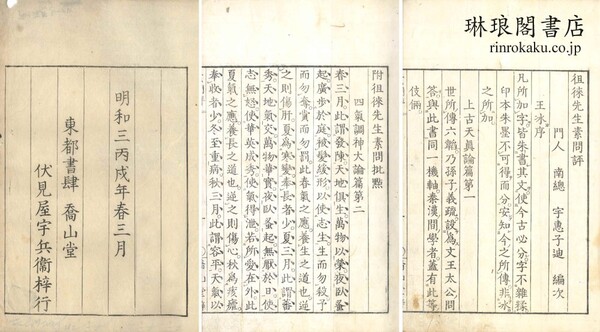 琳琅閣書店
rinrokaku.co.jp
徂徠先生素問評
門人 南總 宇惠子迪 編次
王冰序
凡所加字皆朱書其文使今古必分字不雜糅
印本朱墨不可得而分安知今之所傳非冰
之所加
上古天眞論篇第一
世所傳六韜乃孫子義疏設為文王太公問
答與此書同一機軸秦漢間學者蓋有此等
伎倆
附徂徠先生素問批點
四氣調神大論篇第二
春三月此謂發陳天地俱生萬物以榮夜臥蚤
起廣步於庭被髮緩形以使志生生而勿殺予
而勿奪賞而勿罰此春氣之應養生之道也逆
之則傷肝夏為寒變奉長者少夏三月此謂蕃
秀天地氣交萬物華實夜臥蚤起無厭於日使
志無怒使華英成秀使氣得泄若所愛在外此
夏氣之應養長之道也逆之則傷心秋為痎瘧
奉收者少冬至重病秋三月此謂容平天氣以
明和三丙戌年春三月
東都書肆 喬山堂
伏見屋宇兵衞梓行